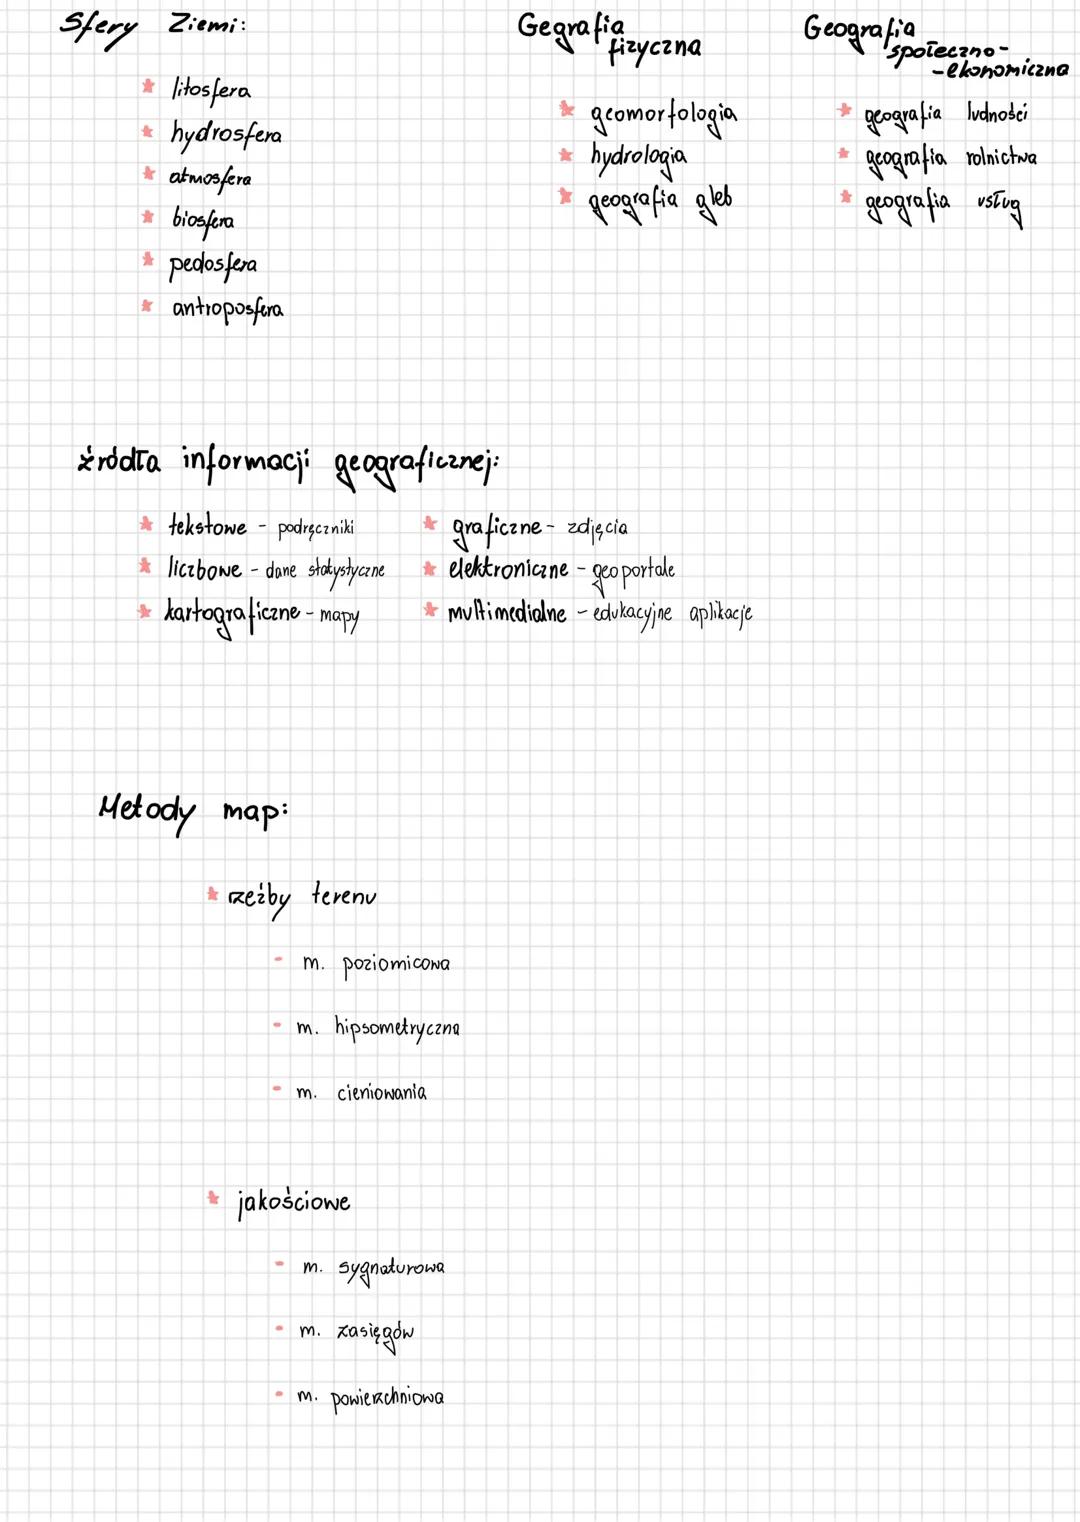 Sfery Ziemi:
* litosfera
* hydrosfera
* atmosfera
* biosfera
* pedosfera
* antroposfera
Gegrafia
fizyczna
* geomorfologia
* hydrologia
* geografia gleb
Geografia
społeczno-
-ekonomiczna
* geografia ludności
* geografia rolnictwa
* geografia usług
źródła informacji geograficznej:
* tekstowe - podręczniki
* liczbowe - dane statystyczne
* kartograficzne - mapy
* graficzne - zdjęcia
* elektroniczne - geoportale
* multimedialne - edukacyjne aplikacje
Metody map:
* rzeźby terenu
- m. poziomicowa
- m. hipsometryczna
- m. cieniowania
* jakościowe
- m. sygnaturowa
- m. zasięgów
- m. powierzchniowa